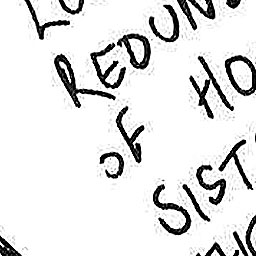 LO
REDUN
OF HO
SIST